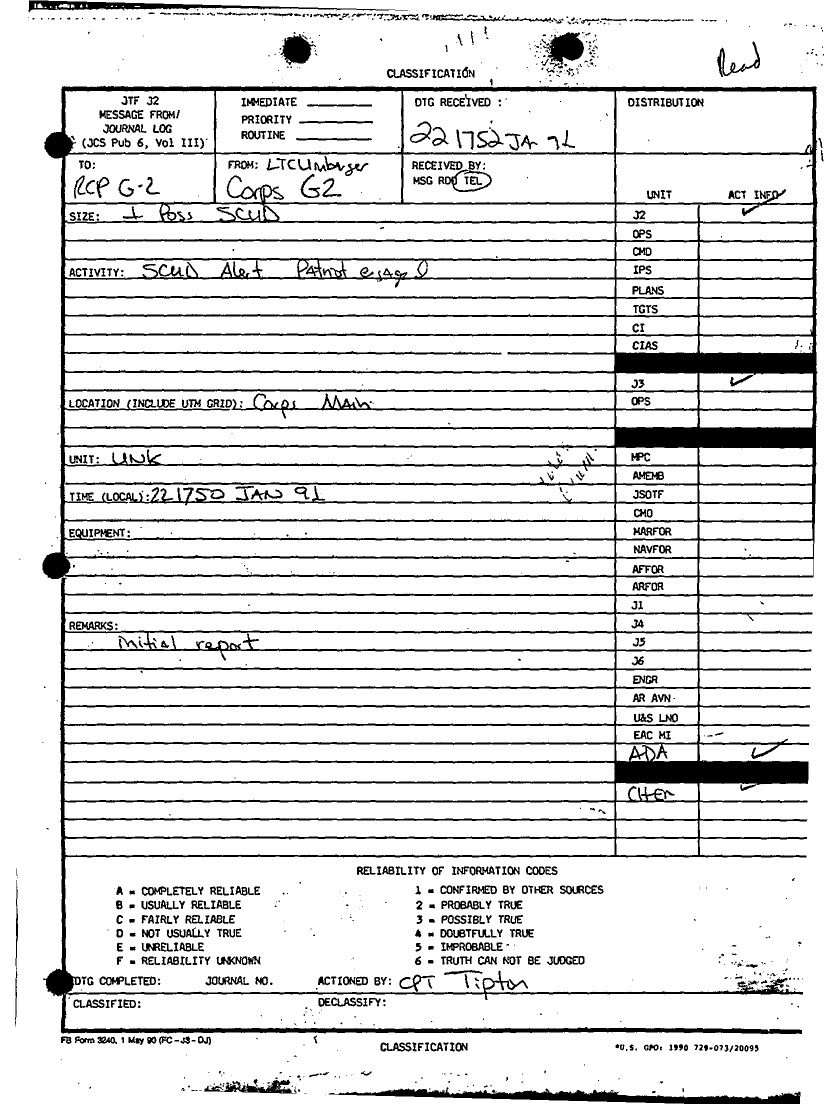 Read
CLASSIFICATION
JTF J2
MESSAGE FROM/
JOURNAL LOG
(JCS Pub 6, Vol III)
IMMEDIATE
PRIORITY
ROUTINE
DTG RECEIVED :
221752 JA 91
DISTRIBUTION
TO:
RCP G-2
FROM: LTC Umbarger
Corps G2
RECEIVED BY:
MSG RDO TEL
UNIT ACT INFO
SIZE: 1 Poss SCUD
J2
OPS
CMD
ACTIVITY: SCUD Alert Patriot engaged
IPS
PLANS
TGTS
CI
CIAS
J3
LOCATION (INCLUDE UTM GRID): Corps Main
OPS
UNIT: UNK
MPC
AMEMB
TIME (LOCAL): 221750 JAN 91
JSOTF
CMO
EQUIPMENT:
MARFOR
NAVFOR
AFFOR
ARFOR
J1
REMARKS:
J4
initial report
J5
J6
ENGR
AR AVN
U&S LNO
EAC MI
ADA
CHEM
RELIABILITY OF INFORMATION CODES
A = COMPLETELY RELIABLE 1 = CONFIRMED BY OTHER SOURCES
B = USUALLY RELIABLE 2 = PROBABLY TRUE
C = FAIRLY RELIABLE 3 = POSSIBLY TRUE
D = NOT USUALLY TRUE 4 = DOUBTFULLY TRUE
E = UNRELIABLE 5 = IMPROBABLE
F = RELIABILITY UNKNOWN 6 = TRUTH CAN NOT BE JUDGED
DTG COMPLETED: JOURNAL NO. ACTIONED BY: CPT Tipton
CLASSIFIED: DECLASSIFY:
FB Form 3240, 1 May 90 (FC-J3-DJ)
CLASSIFICATION
*U.S. GPO: 1990 729-073/20095